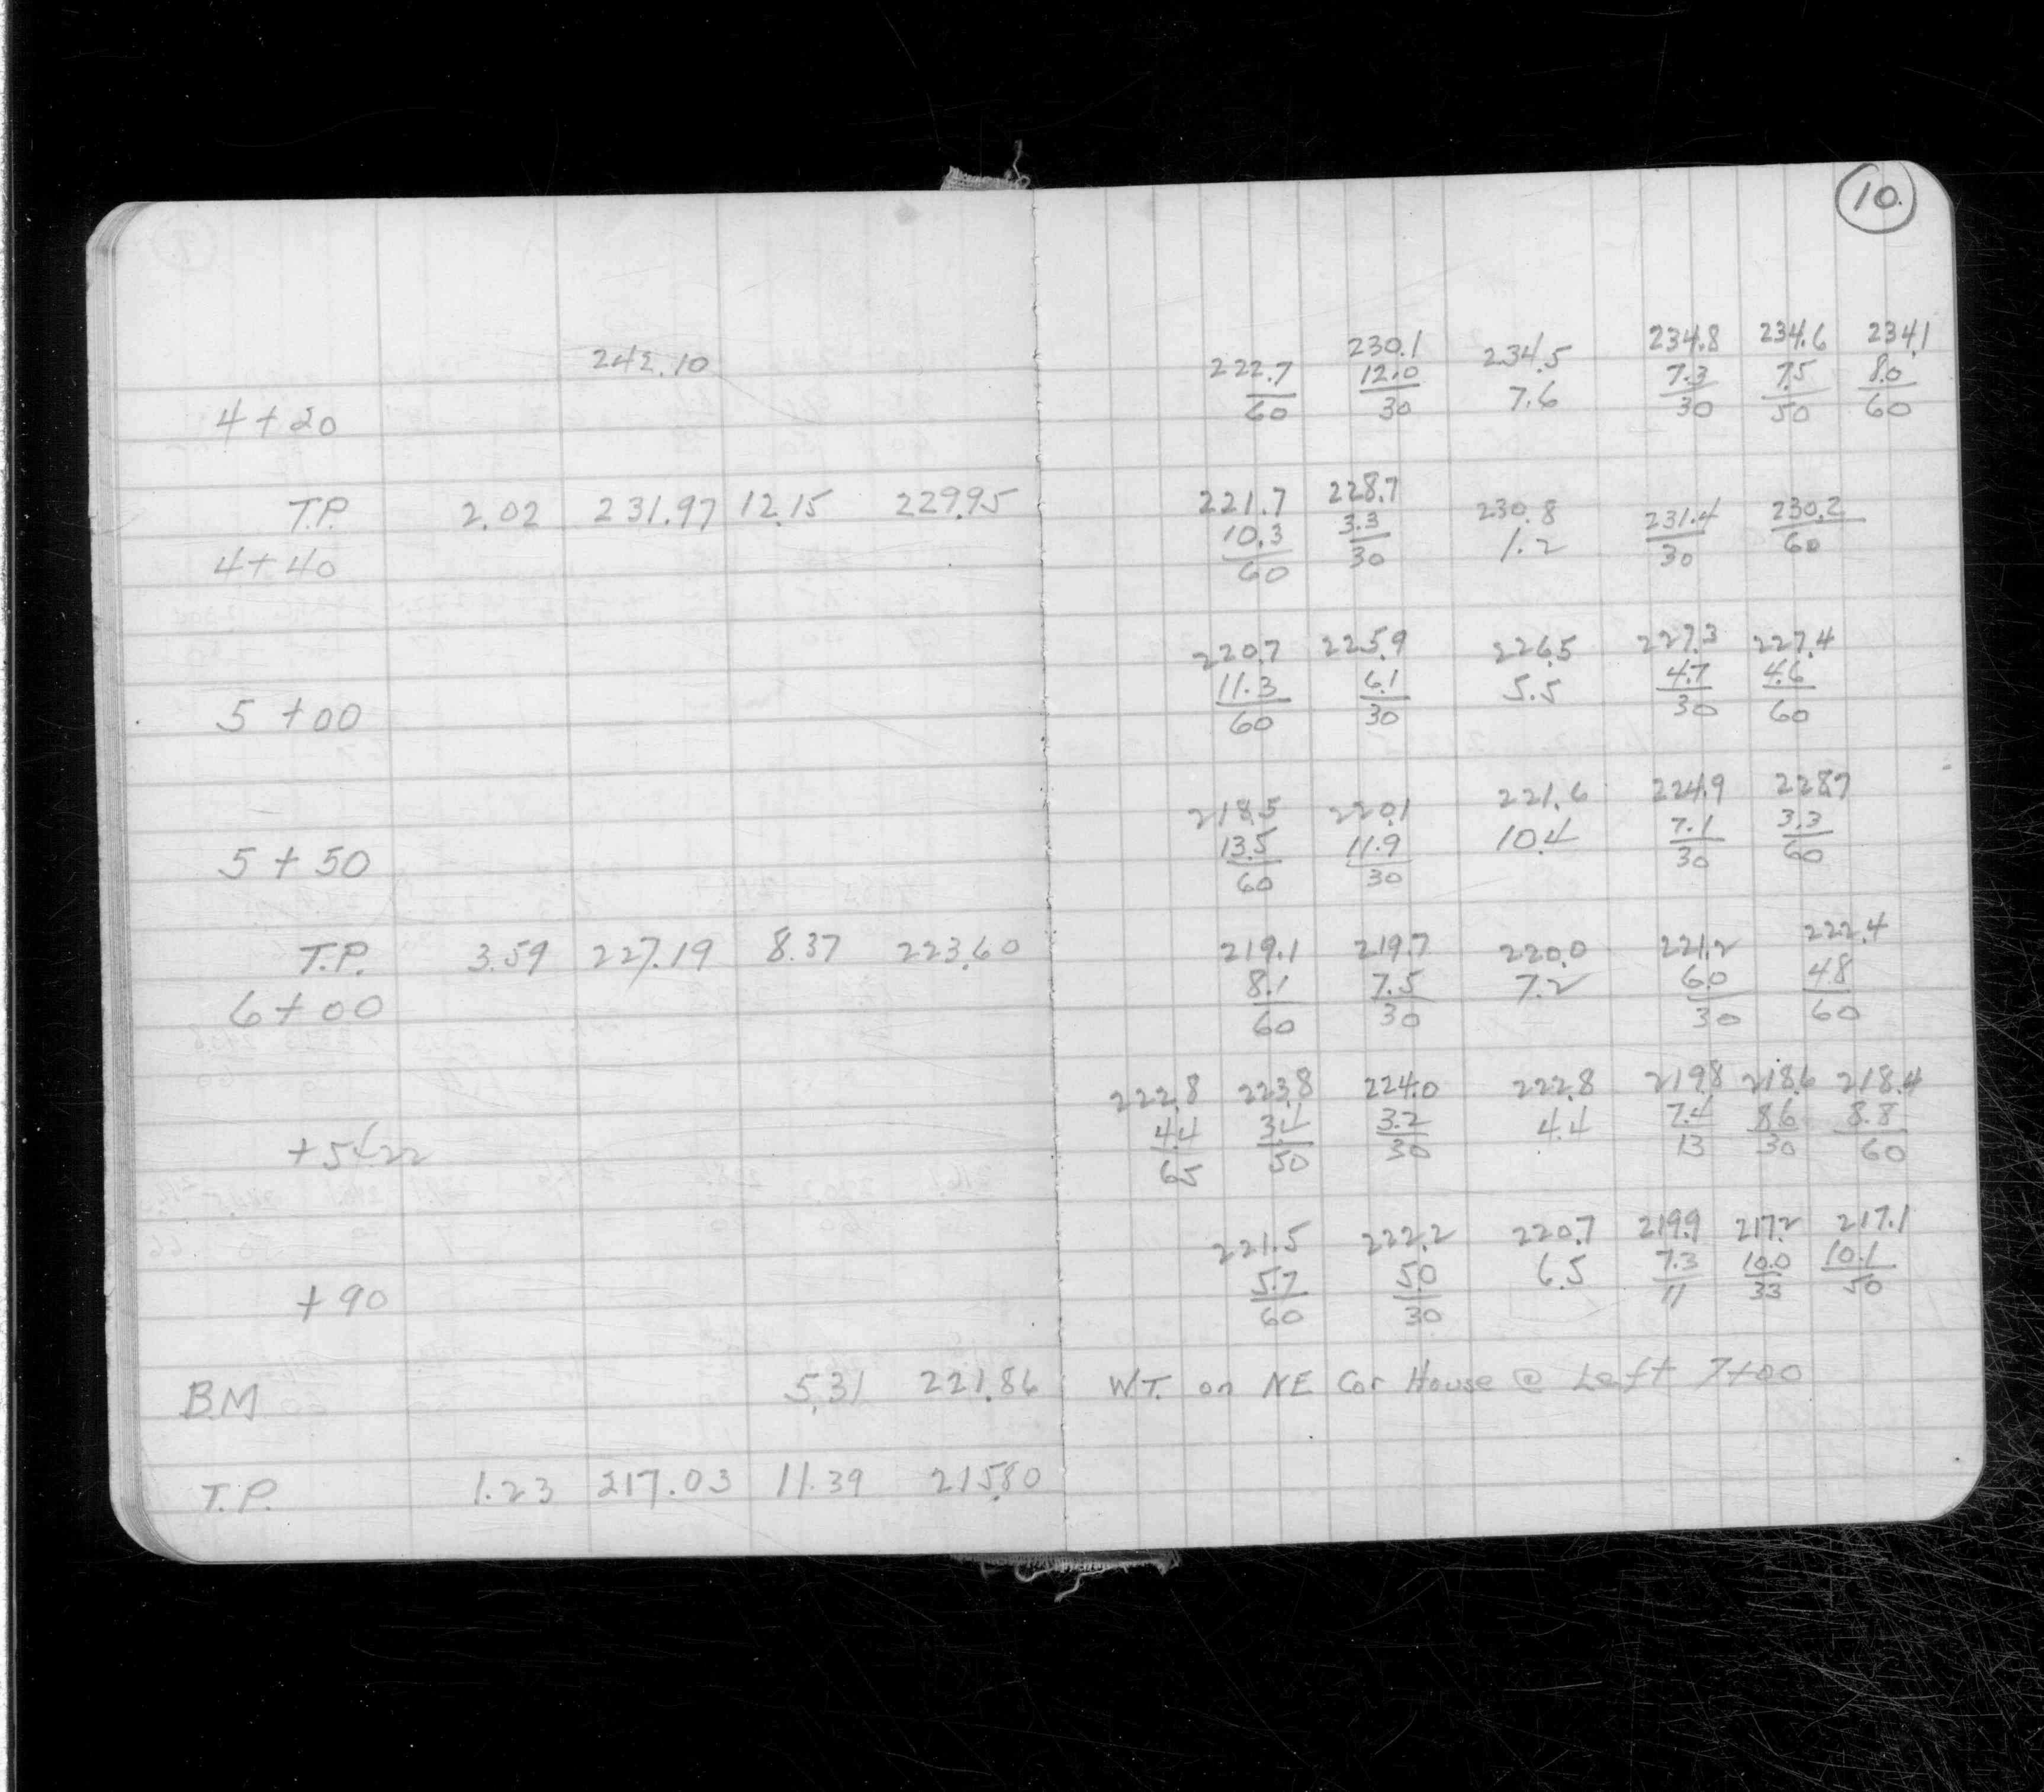 10.
242.10 222.7 230.1 234.5 234.8 234.6 234.1
12.0 7.6 7.3 7.5 8.0
4+20 60 30 30 50 60
T.P. 2.02 231.97 12.15 229.95 221.7 228.7 230.8 231.4 230.2
10.3 3.3 1.2
4+40 60 30 30 60
220.7 225.9 226.5 227.3 227.4
11.3 6.1 5.5 4.7 4.6
5+00 60 30 30 60
218.5 220.1 221.6 224.9 228.7
13.5 11.9 10.4 7.1 3.3
5+50 60 30 30 60
T.P. 3.59 227.19 8.37 223.60 219.1 219.7 220.0 221.2 222.4
8.1 7.5 7.2 6.0 4.8
6+00 60 30 30 60
222.8 223.8 224.0 222.8 219.8 218.6 218.4
4.4 3.4 3.2 4.4 7.4 8.6 8.8
65 50 30 13 30 60
221.5 222.2 220.7 219.9 217.2 217.1
5.7 5.0 6.5 7.3 10.0 10.1
+90 60 30 11 33 50
BM 5.31 221.86 W.T. on NE Cor House @ Left 7+00
T.P. 1.23 217.03 11.39 215.80